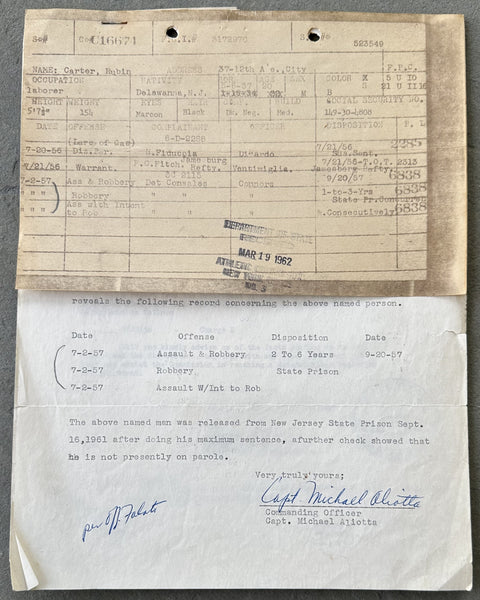 So# Co# C16671 F.B.I.# 3172970 S.B.#
523549
NAME: Carter, Rubin ADDRESS 37-12th A e., City F.P.C.
OCCUPATION NATIVITY AGE RACE SEX COLOR
laborer Delawanna, N.J. M B
HEIGHT WEIGHT EYES HAIR BUILD SOCIAL SECURITY NO.
5'7½" 154 Maroon Black Dk. Neg. Med. 149-30-4808
DATE OFFENSE COMPLAINANT OFFICER DISPOSITION
(Larc of Gas) 6-D-2228 7/21/56 2285
7-20-56 Dis.Per. N.Fiducola Dicardo Sus.Sent.
7/21/56 Warrant. P.O.Fitch, Jamesburg Hefty. Ventimiglia. 7/21/56-T.O.T. 2313
Jamesburg Hefty.
7-2-57 Ass & Robbery Det Consales Connors 9/20/57 6838
" " " Robbery " " " 1-to-3-Yrs 6838
State Pr.
" " " Ass with Intent " " "
to Rob & Consecutively 6838
DEPARTMENT OF STATE
MAR 19 1962
ATHLETIC
NEW YORK
NO. 3
reveals the following record concerning the above named person.
Date Offense Disposition Date
7-2-57 Assault & Robbery 2 To 6 Years 9-20-57
7-2-57 Robbery State Prison
7-2-57 Assault W/Int to Rob
The above named man was released from New Jersey State Prison Sept.
16,1961 after doing his maximum sentence, afurther check showed that
he is not presently on parole.
Very truly yours;
Capt. Michael Aliotta
Commanding Officer
Capt. Michael Aliotta
per Off. Falato